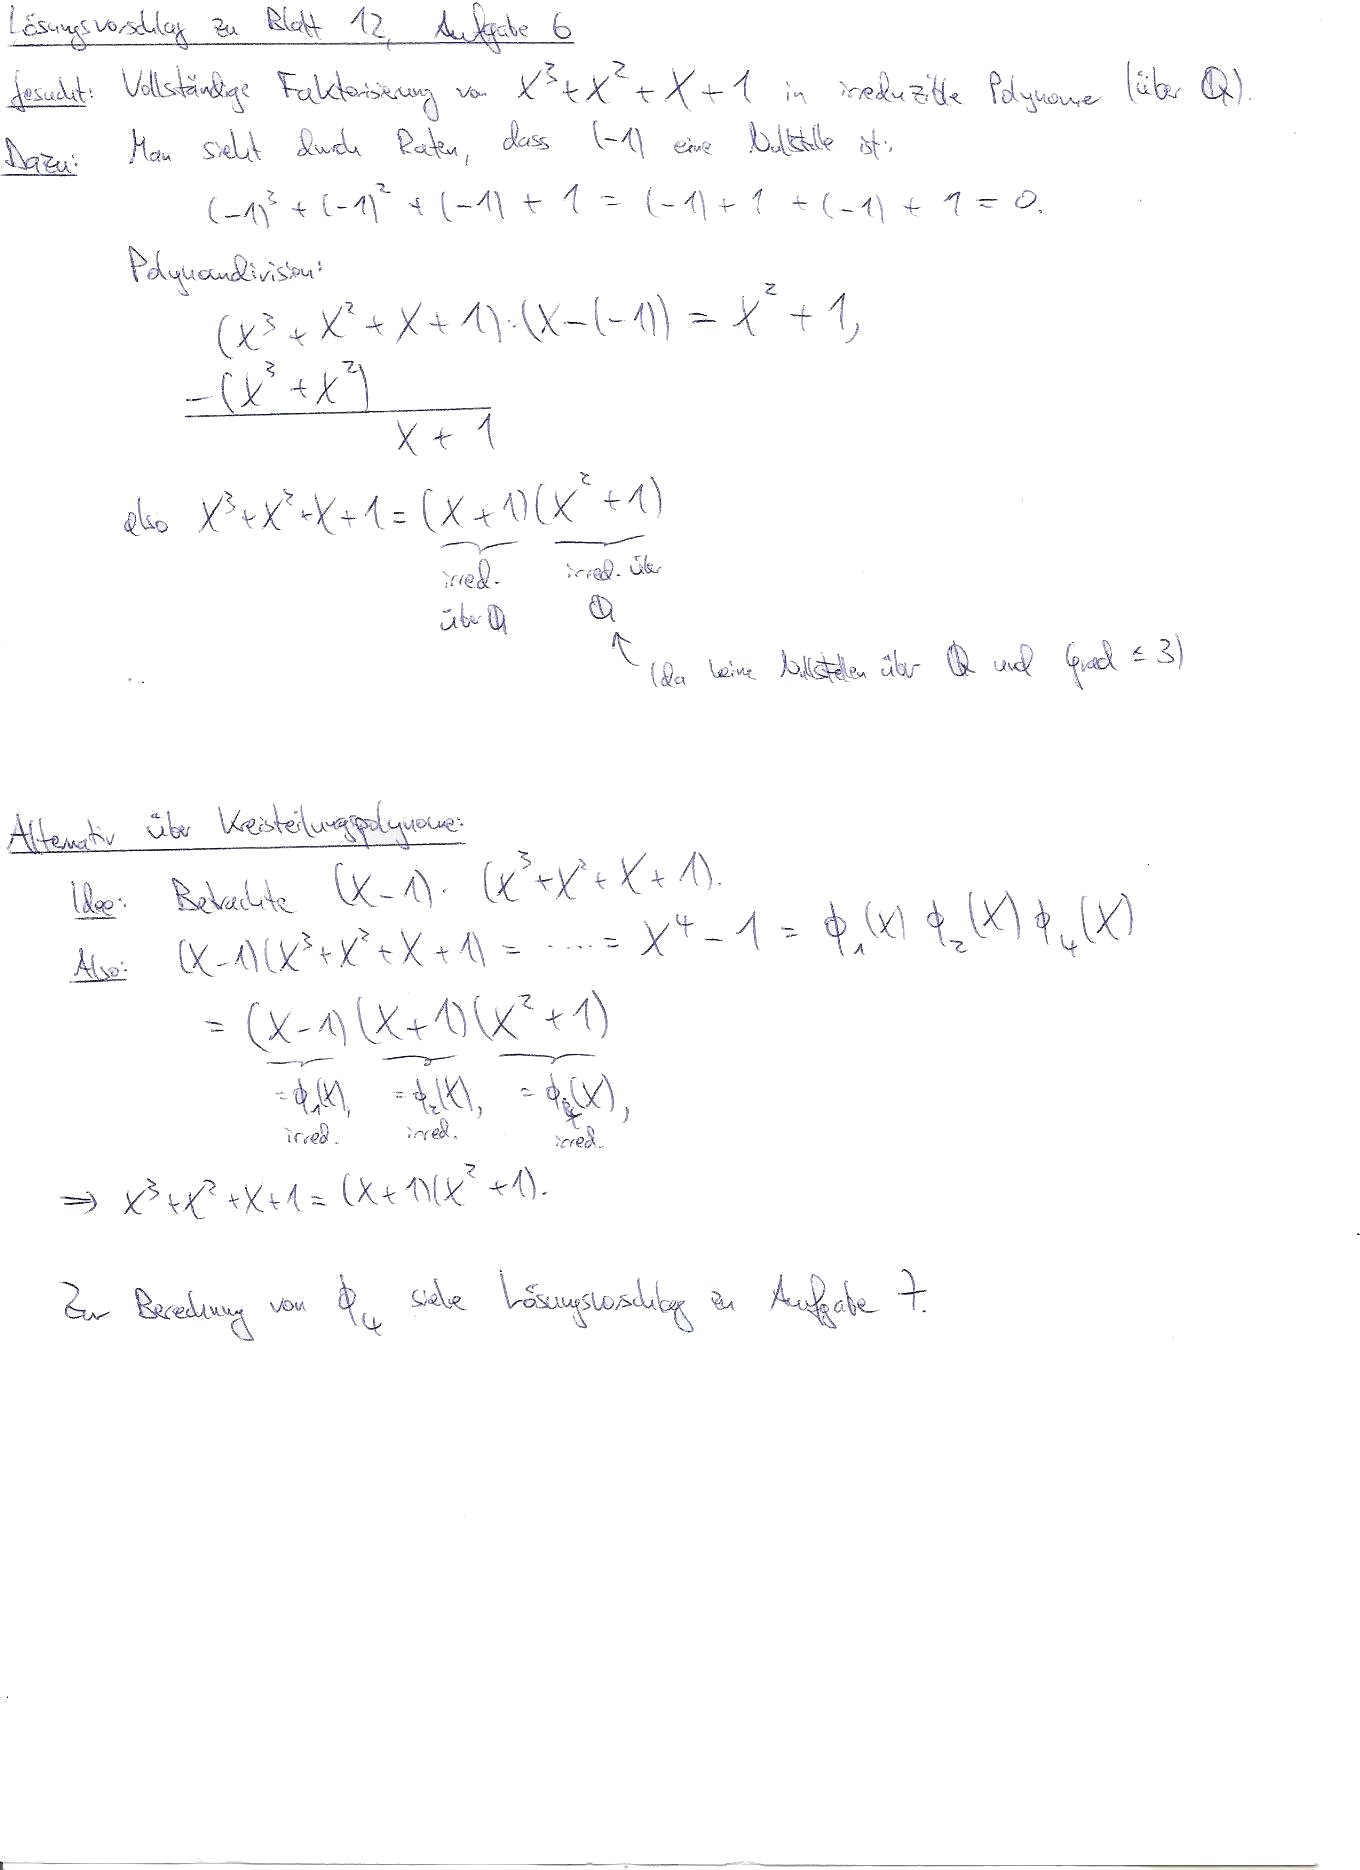 Lösungsvorschlag zu Blatt 12, Aufgabe 6
Gesucht: Vollständige Faktorisierung von X³+X²+X+1 in irreduzible Polynome (über ℚ).
Dazu: Man sieht durch Raten, dass (-1) eine Nullstelle ist:
(-1)³ + (-1)² + (-1) + 1 = (-1) + 1 + (-1) + 1 = 0.
Polynomdivision:
(X³ + X² + X + 1) : (X-(-1)) = X² + 1,
-(X³ + X²)
X + 1
also X³+X²+X+1 = (X+1)(X²+1)
irred. irred. über
über ℚ ℚ
↑ (da keine Nullstellen über ℚ und Grad ≤ 3)
Alternativ über Kreisteilungspolynome:
Idee: Betrachte (X-1)·(X³+X²+X+1).
Also: (X-1)(X³+X²+X+1) = ..... = X⁴-1 = ϕ₁(X) ϕ₂(X) ϕ₄(X)
= (X-1)(X+1)(X²+1)
=ϕ₁(X), =ϕ₂(X), =ϕ₄(X),
irred. irred. irred.
⇒ X³+X²+X+1 = (X+1)(X²+1).
Zur Berechnung von ϕ₄ siehe Lösungsvorschlag zu Aufgabe 7.